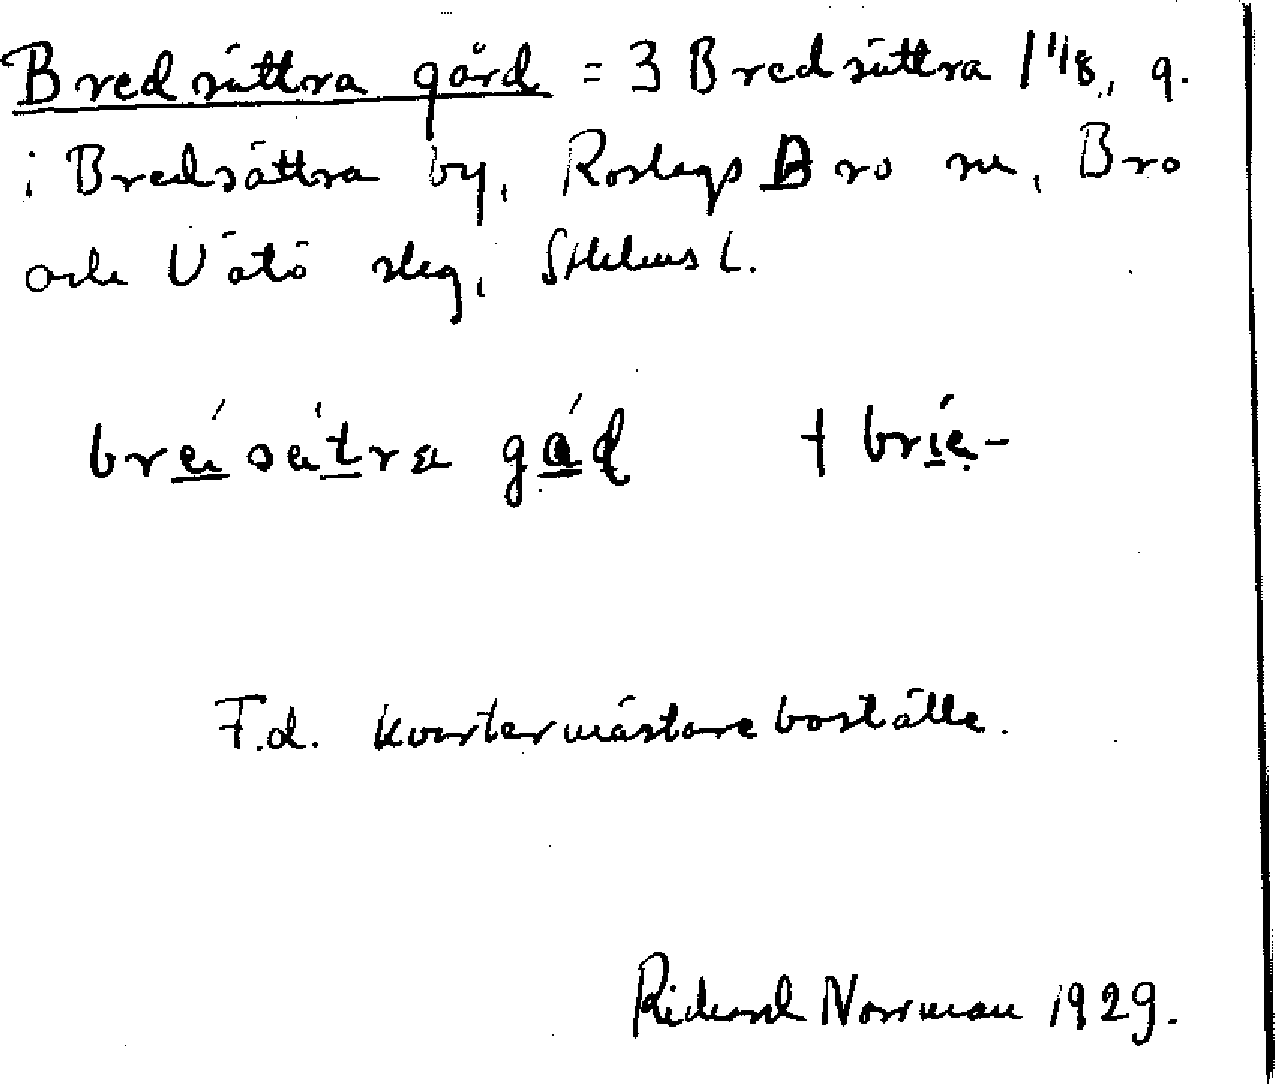 Bredsättra gård = 3 Bredsättra 1 1/8, g.
i Bredsättra by, Roslags Bro sn, Bro
och Vätö slg, Sthlms L.
gåd
F.d. kvartermästareboställe.
Rickard Norrman 1929.